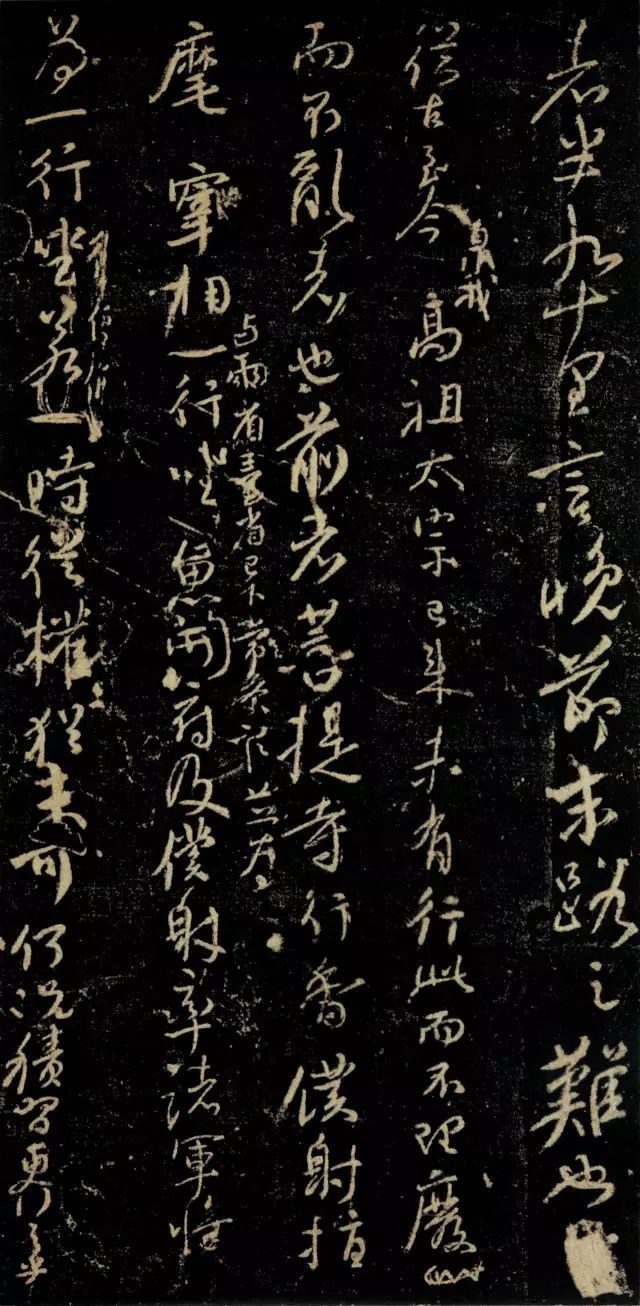 者半九十里言晚節末路之難也
從古至今臮我高祖太宗已來未有行此而不理廢之
而不亂者也前者菩提寺行香僕射指
麾宰相
与兩省臺省已下常參官並為
一行坐魚開府及僕射率諸軍將
為一行坐若一時從權猶未可何況積習更行之乎